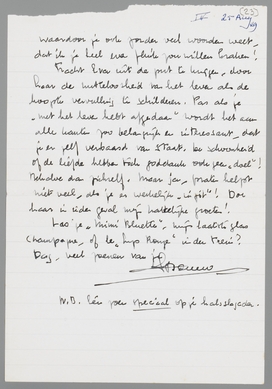 IV 25 Aug
waardoor je ook zonder veel woorden weet,
dat ik je heel even zou willen
Tracht Eva uit de put te krijgen, door
haar de nutteloosheid van het leven als de
hoogste vervulling te schilderen. Pas als je
"met het leven hebt afgedaan" wordt het aan
alle kanten zoo belangrijk en interessant, dat
je er zelf verbaasd van staat. De schoonheid
of de liefde hebben toch goddank ook geen "doel"!
Behalve dan zichzelf. Maar ja, praten helpt
niet veel, als je er werkelijk "in zit"! Doe
haar in ieder geval mijn hartelijke groeten!
Las je "Mimi Bluette", mijn laatste glas
champagne, of de in den trein?
Dag, veel zoenen van je
N.B. Eén zoen speciaal op je halsslagader.